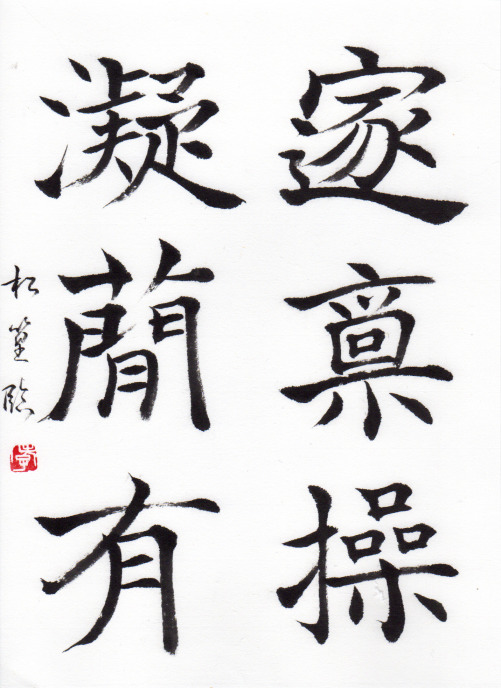 邃禀操
凝簡有
松篁臨